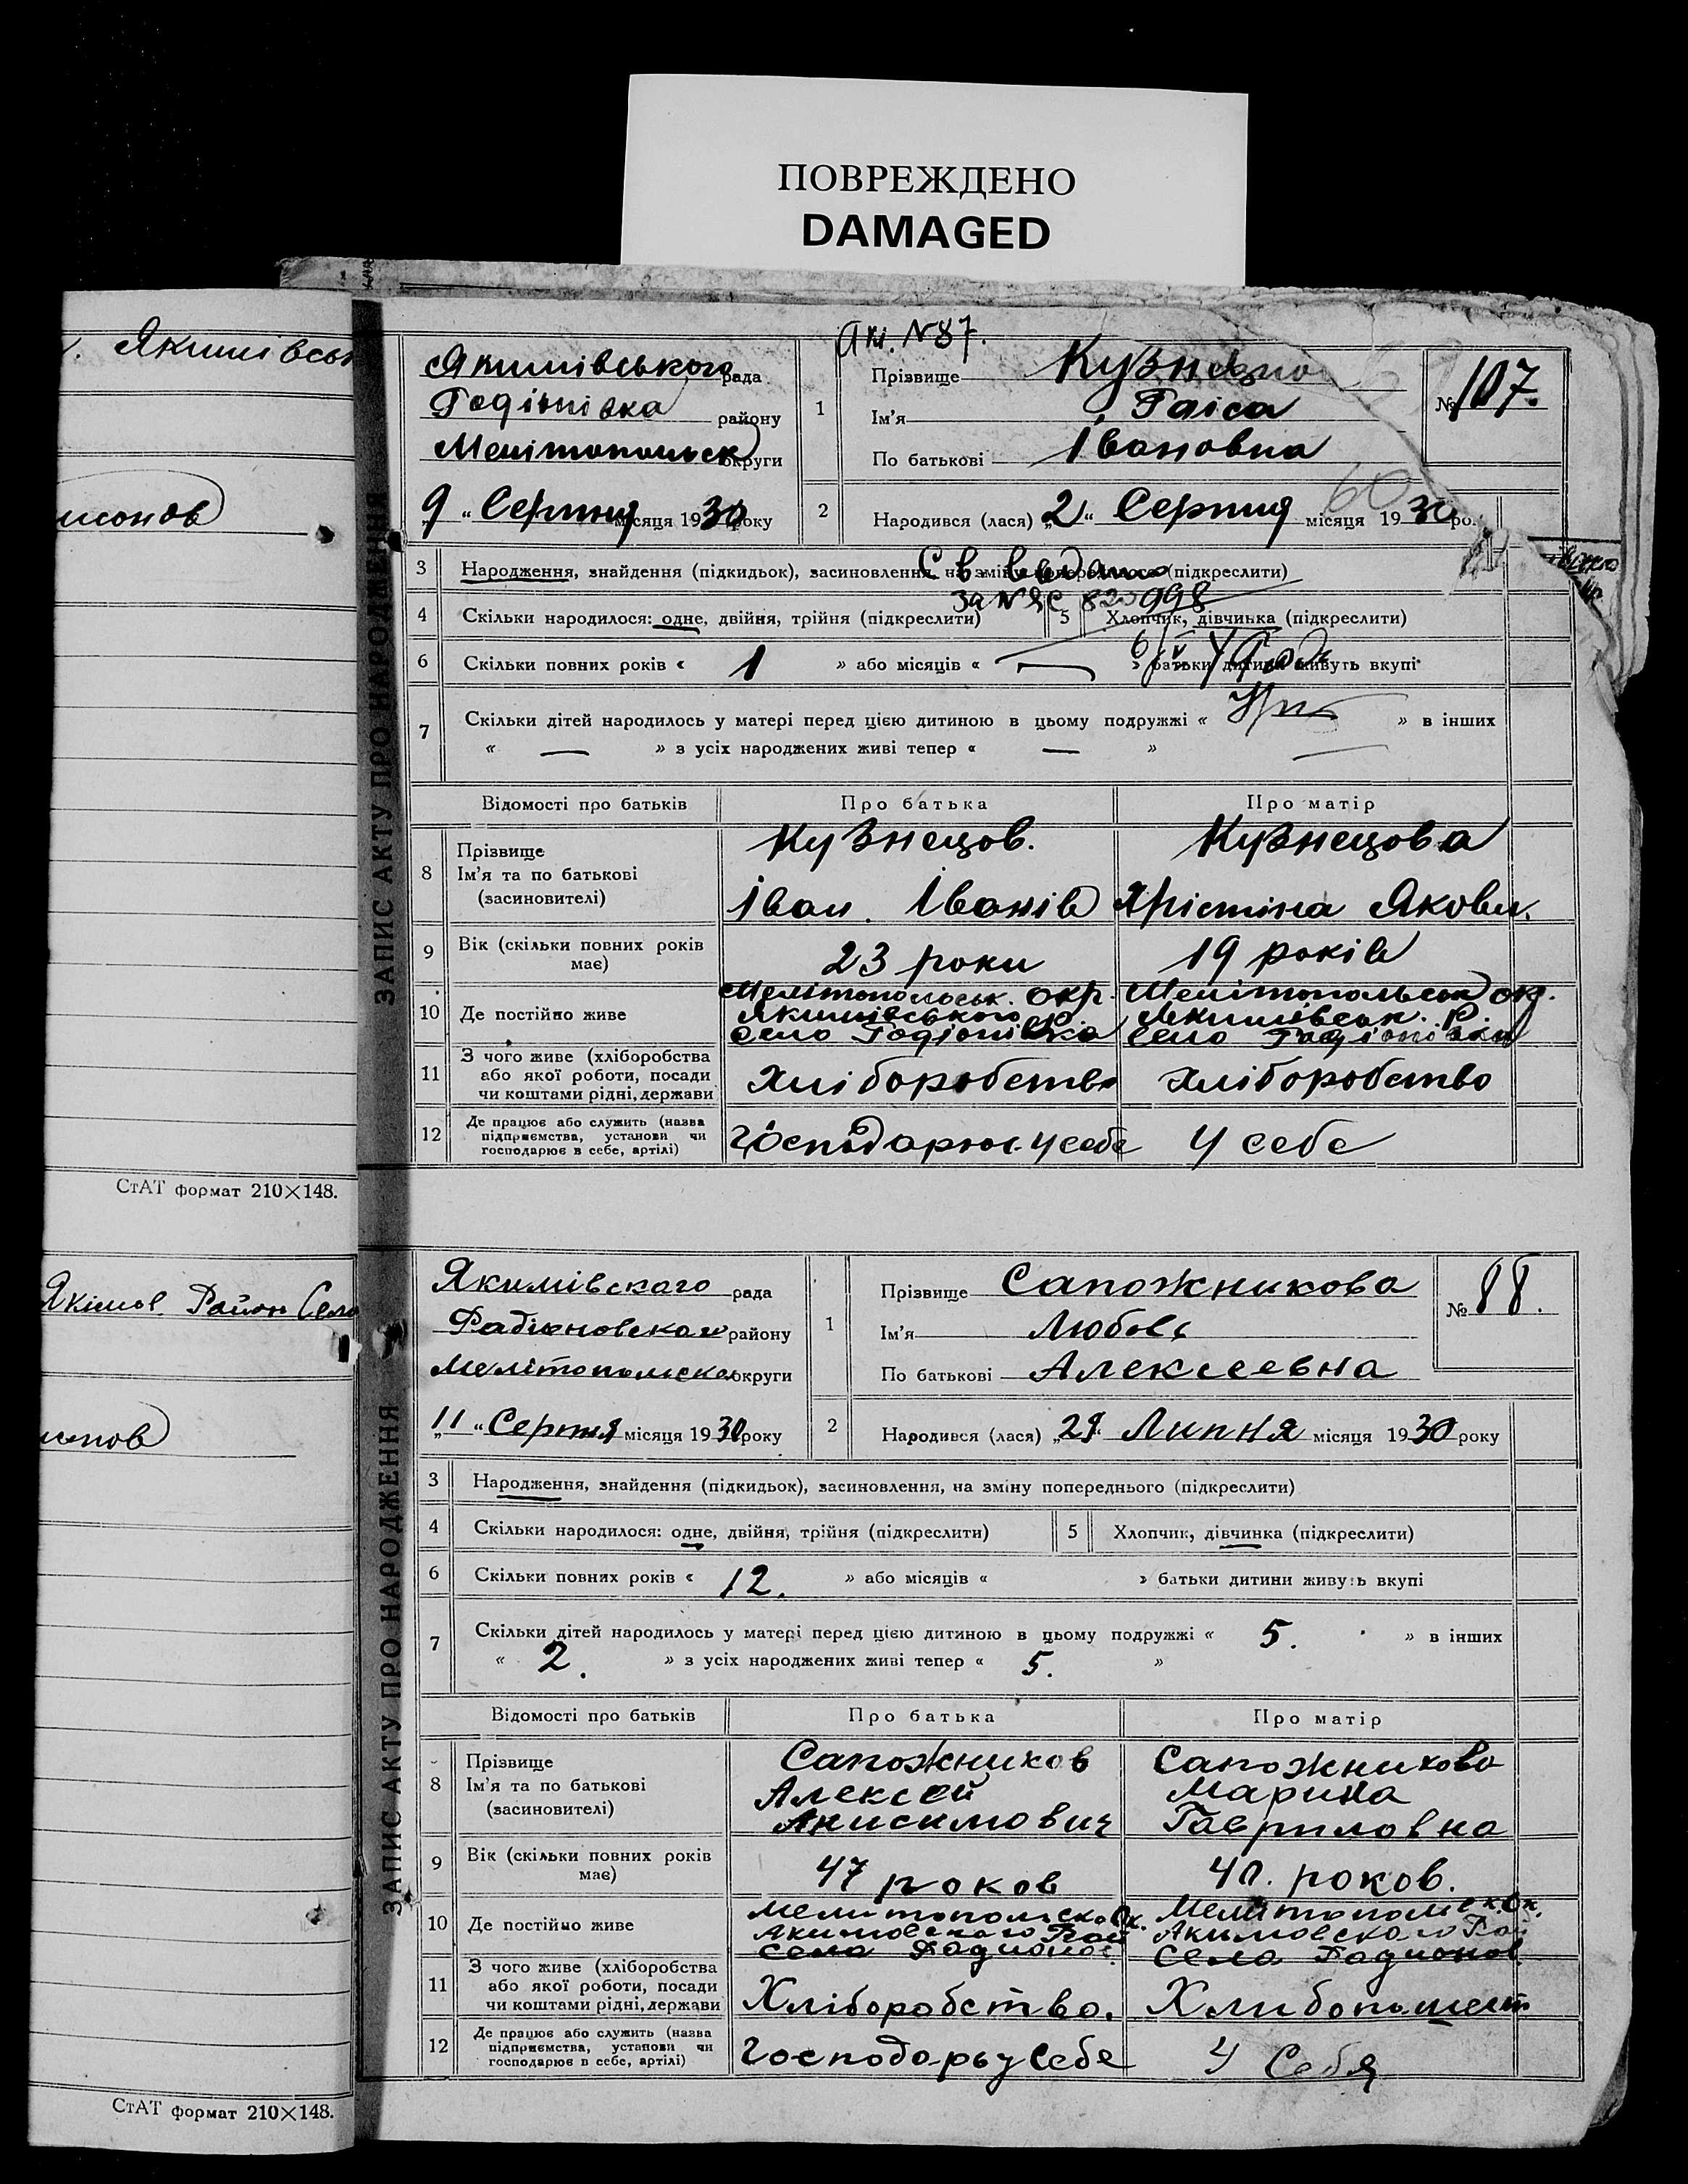 ПОВРЕЖДЕНО
DAMAGED
Якимівськ
СтАТ формат 210×148.
Якімов. Район Село
СтАТ формат 210×148.
ЗАПИС АКТУ ПРО НАРОДЖЕННЯ
Акт. №87.
Якимівського рада
Родіонівка району
Мелітопольськ округи
9 „ Серпня місяця 1930 року
1 Прізвище
Ім'я Раїса
По батькові Івановна
№ 107.
2 Народився (лася) „2“ Серпня місяця 1930 ро.
3 Народження, знайдення (підкидьок), засиновлення, на зміну попереднього (підкреслити)
Св. видано
за № ЯС 820998
4 Скільки народилося: одне, двійня, трійня (підкреслити) 5 Хлопчик, дівчинка (підкреслити)
6 Скільки повних років « 1 » або місяців « — » батьки дитини живуть вкупі
7 Скільки дітей народилось у матері перед цією дитиною в цьому подружжі « » в інших
« — » з усіх народжених живі тепер « — »
Відомості про батьків Про батька Про матір
8 Прізвище Ім'я та по батькові (засновителі)
Кузнецов. Кузнецова
Іван. Іванів Христіна Яковл.
9 Вік (скільки повних років має) 23 роки 19 років
10 Де постійно живе
Мелітопольськ. окр. Мелітопольськ ок.
Якимівського Р. Якимівськ. Р.
село Родіонівка село Родіонівка
11 З чого живе (хліборобства або якої роботи, посади чи коштами рідні, держави
Хліборобство хліборобство
12 Де працює або служить (назва підприємства, установи чи господарює в себе, артілі)
Господарює у себе У себе
ЗАПИС АКТУ ПРО НАРОДЖЕННЯ
Якимівскаго рада
Радионовскаго району
Мелітопольско округи
„11“ Серпня місяця 1930 року
1 Прізвище Сапожникова
Ім'я Любовь
По батькові Алексеевна
№ 88.
2 Народився (лася) „29“ Липня місяця 1930 року
3 Народження, знайдення (підкидьок), засиновлення, на зміну попереднього (підкреслити)
4 Скільки народилося: одне, двійня, трійня (підкреслити) 5 Хлопчик, дівчинка (підкреслити)
6 Скільки повних років « 12. » або місяців « » батьки дитини живуть вкупі
7 Скільки дітей народилось у матері перед цією дитиною в цьому подружжі « 5. » в інших
« 2. » з усіх народжених живі тепер « 5. »
Відомості про батьків Про батька Про матір
8 Прізвище Ім'я та по батькові (засиновителі)
Сапожников Сапожникова
Алексей Марина
Анисимович Гавриловна
9 Вік (скільки повних років має) 47 роков 40. роков.
10 Де постійно живе
Мелитопольско Ок. Мелитопольск. Ок.
Акимовского Рай Акимовского Рай
Села Радионов. Села Радионов.
11 З чого живе (хліборобства або якої роботи, посади чи коштами рідні, держави
Хліборобство.
12 Де працює або служить (назва підприємства, установи чи господарює в себе, артілі)
Господарь у Себе У Себя